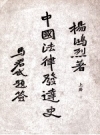 楊鴻烈著
上冊
中國法律發達史
馬君武題簽